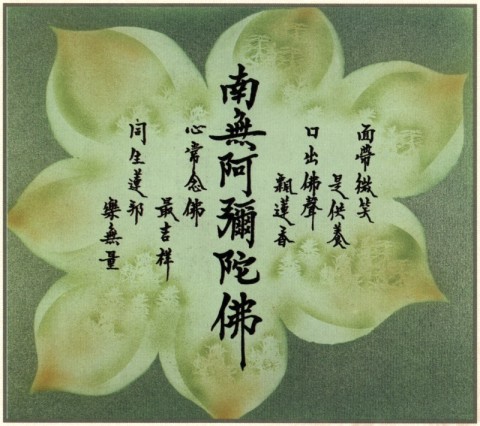 面帶微笑
是供養
口出佛聲
飄蓮香
南無阿彌陀佛
心常念佛
最吉祥
同生蓮邦
樂無量